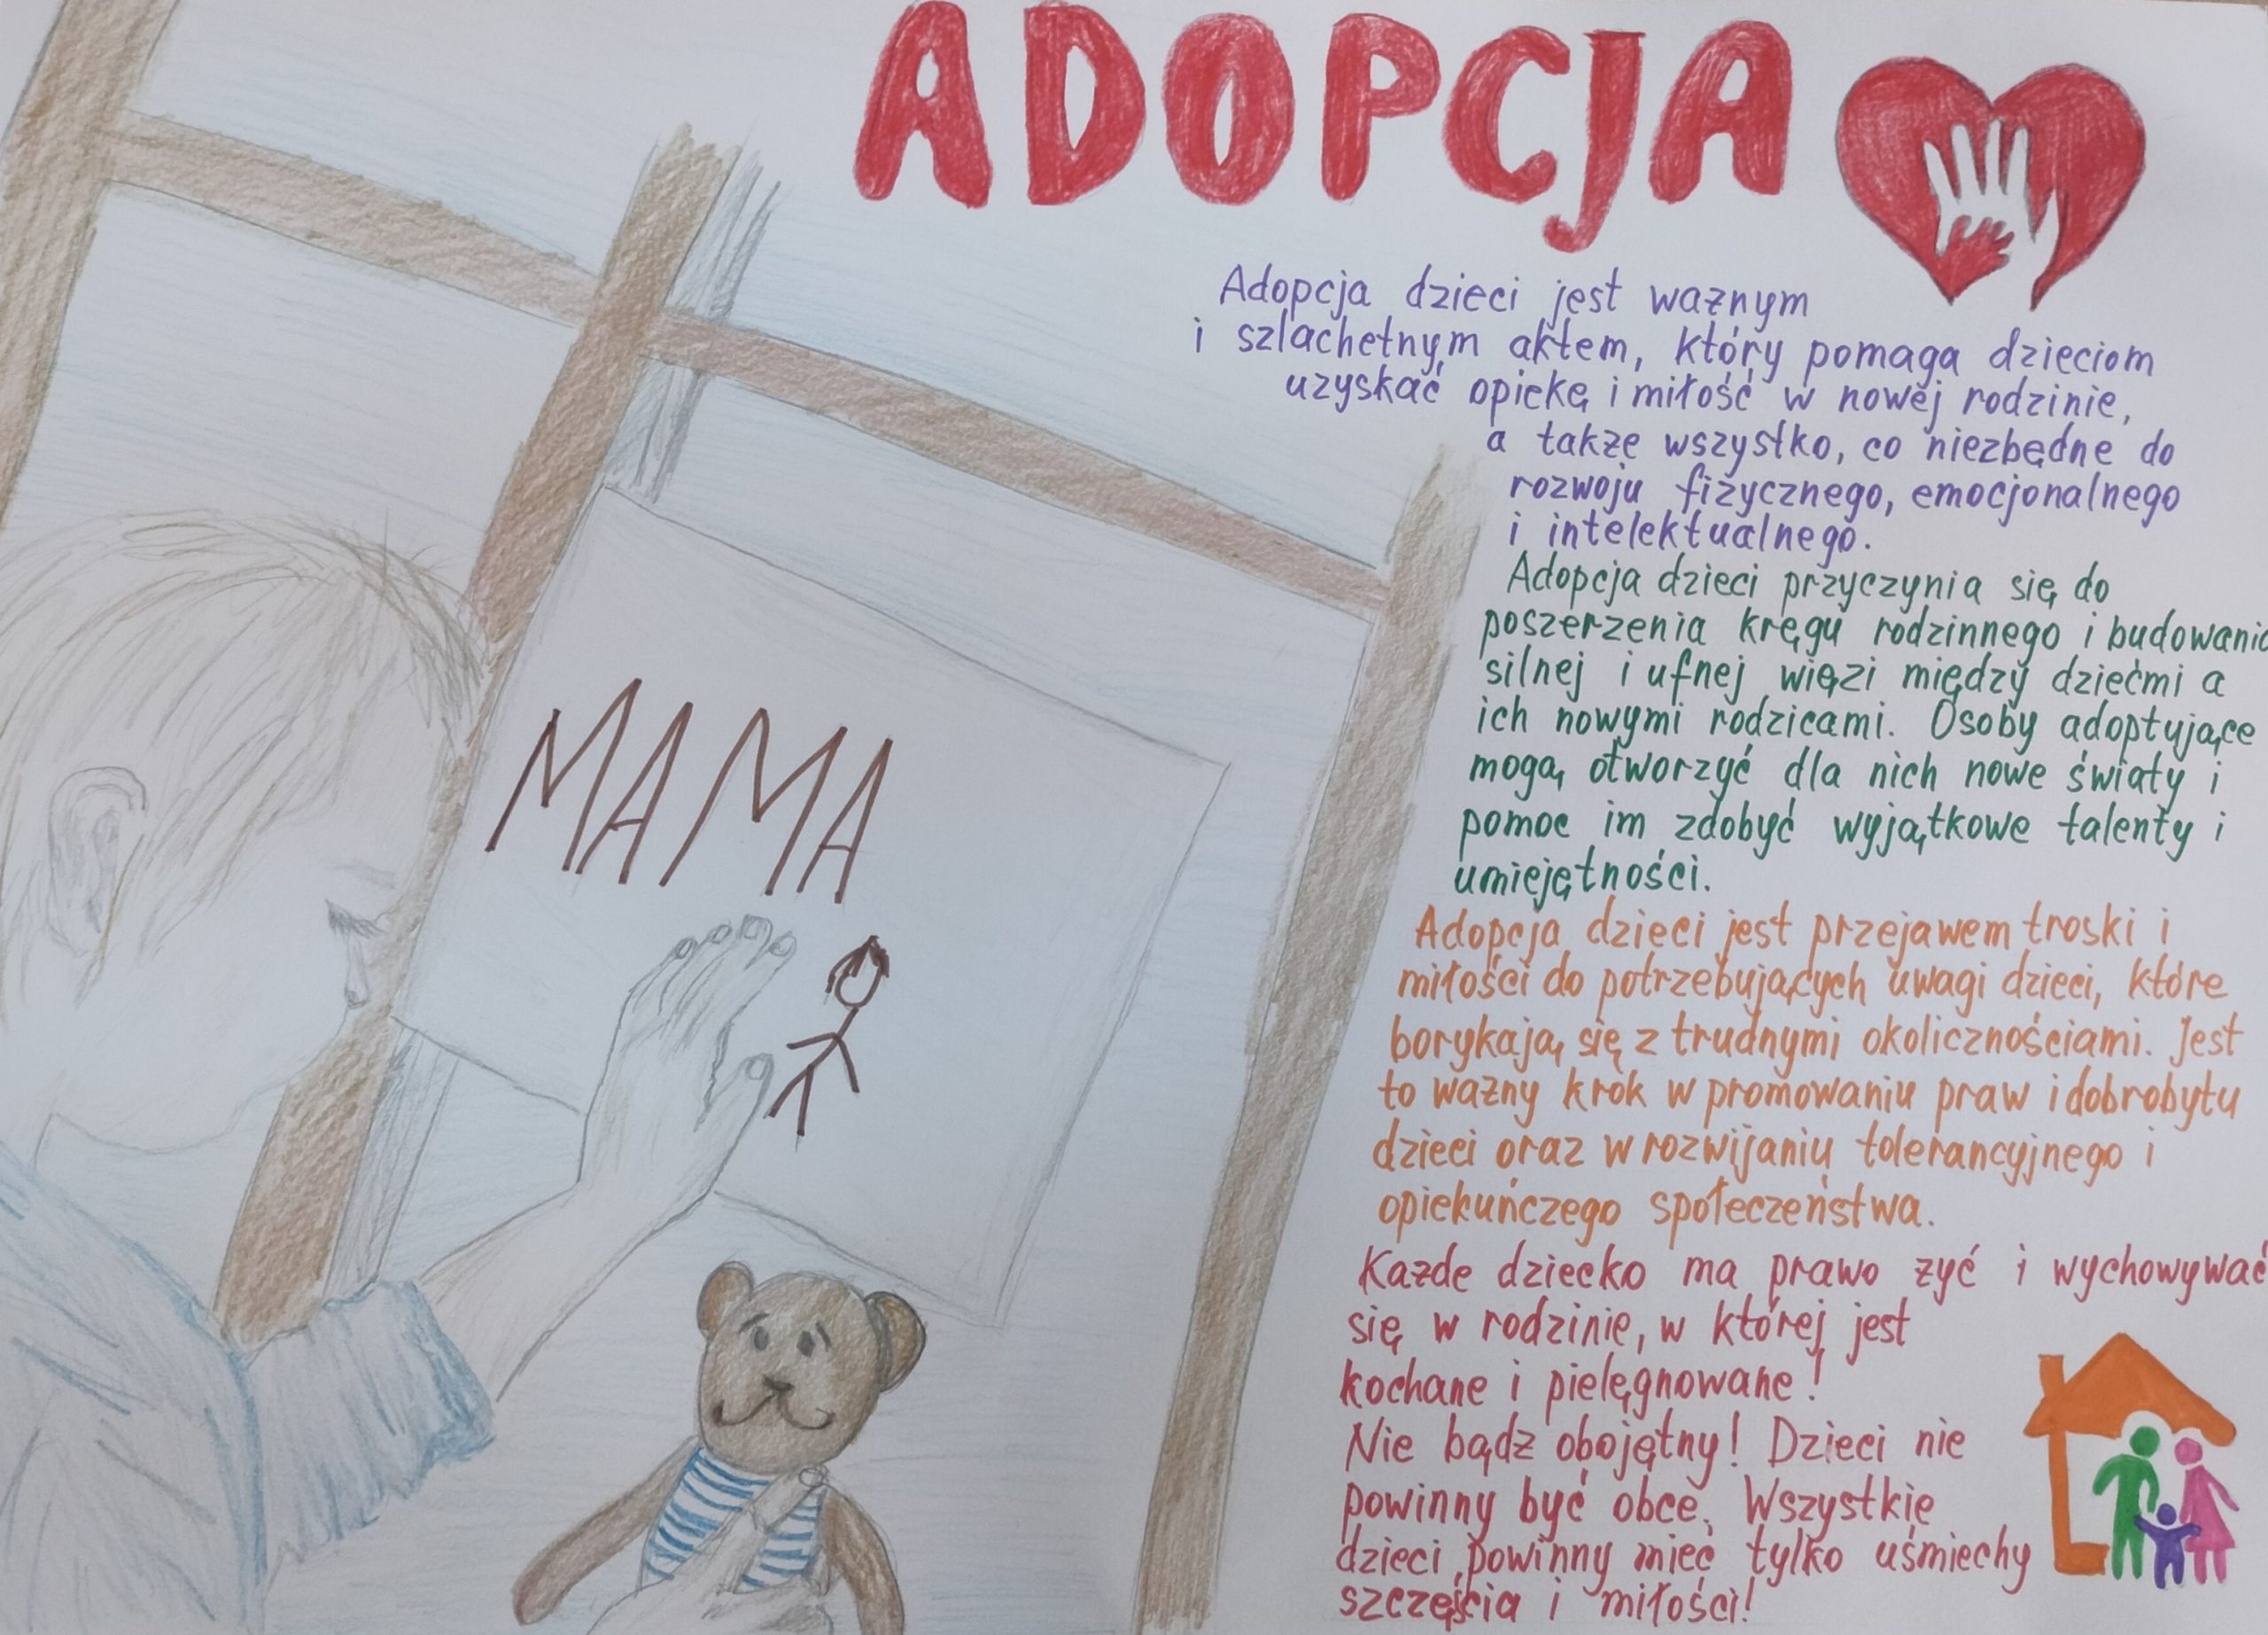 ADOPCJA
Adopcja dzieci jest ważnym
i szlachetnym aktem, który pomaga dzieciom
uzyskać opiekę i miłość w nowej rodzinie,
a także wszystko, co niezbędne do
rozwoju fizycznego, emocjonalnego
i intelektualnego.
Adopcja dzieci przyczynia się do
poszerzenia kręgu rodzinnego i budowania
silnej i ufnej więzi między dziećmi a
ich nowymi rodzicami. Osoby adoptujące
mogą otworzyć dla nich nowe światy i
pomoc im zdobyć wyjątkowe talenty i
umiejętności.
Adopcja dzieci jest przejawem troski i
miłości do potrzebujących uwagi dzieci, które
borykają się z trudnymi okolicznościami. Jest
to ważny krok w promowaniu praw i dobrobytu
dzieci oraz w rozwijaniu tolerancyjnego i
opiekuńczego społeczeństwa.
Każde dziecko ma prawo żyć i wychowywać
się w rodzinie, w której jest
kochane i pielęgnowane!
Nie bądź obojętny! Dzieci nie
powinny być obce. Wszystkie
dzieci powinny mieć tylko uśmiechy
szczęścia i miłości!
MAMA